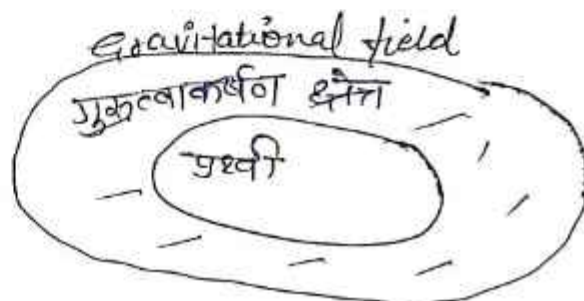 Gravitational field
गुरुत्वाकर्षण क्षेत्र
पृथ्वी